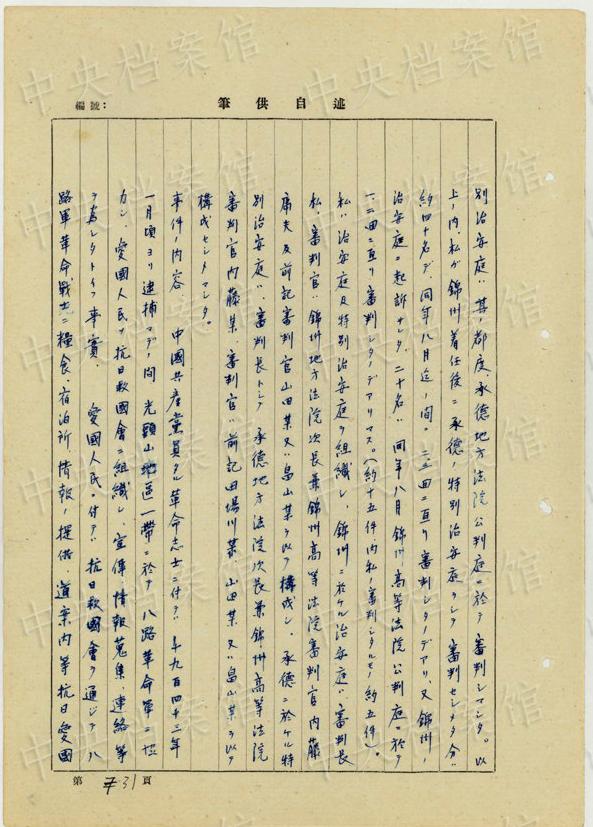 編號：
述自供筆
別治安庭ハ其ノ都度、承德地方法院公判庭ニ於テ審判シマシタ。以
上ノ内、私ガ錦州ニ着任後ニ承德ノ特別治安庭ヲシテ審判セシメタ分ハ
約四十名デ、同年八月迄ノ間。二三回ニ亘リ審判シタノデアリ、又錦州ノ
治安庭ニ起訴サレタ、二十名ハ同年八月錦州高等法院公判庭ニ於テ
一、二回ニ亘リ審判シタノデアリマス。（約十五件、内私ノ審判シタルモノ約五件）。
私ハ治安庭及特別治安庭ヲ組織シ、錦州ニ於ケル治安庭ハ、審判長
私、審判官ハ錦州地方法院次長兼錦州高等法院審判官内藤
庸夫及前記審判官山田某又ハ畠山某ヲ以テ構成シ、承德ニ於ケル特
別治安庭ハ、審判長トシテ承德地方法院次長兼錦州高等法院
審判官内藤某、審判官ハ前記田場川某、山田某又ハ畠山某ヲ以テ
構成セシメマシタ。
事件ノ内容　中國共産黨員タル革命志士ニ付テハ千九百四十三年
一月頃ヨリ逮捕マデノ間光頭山地區一帶ニ於テ八路革命軍ニ
カシ、愛國人民ヲ抗日救國會ニ組織シ、宣傳情報蒐集、連絡等
ヲ為シタトイフ事實、愛國人民ニ付テハ抗日救國會ヲ通ジテ八
路軍革命戰士ニ糧食、宿泊所情報ノ提供道案内等抗日愛國
第 31 頁
中央档案馆